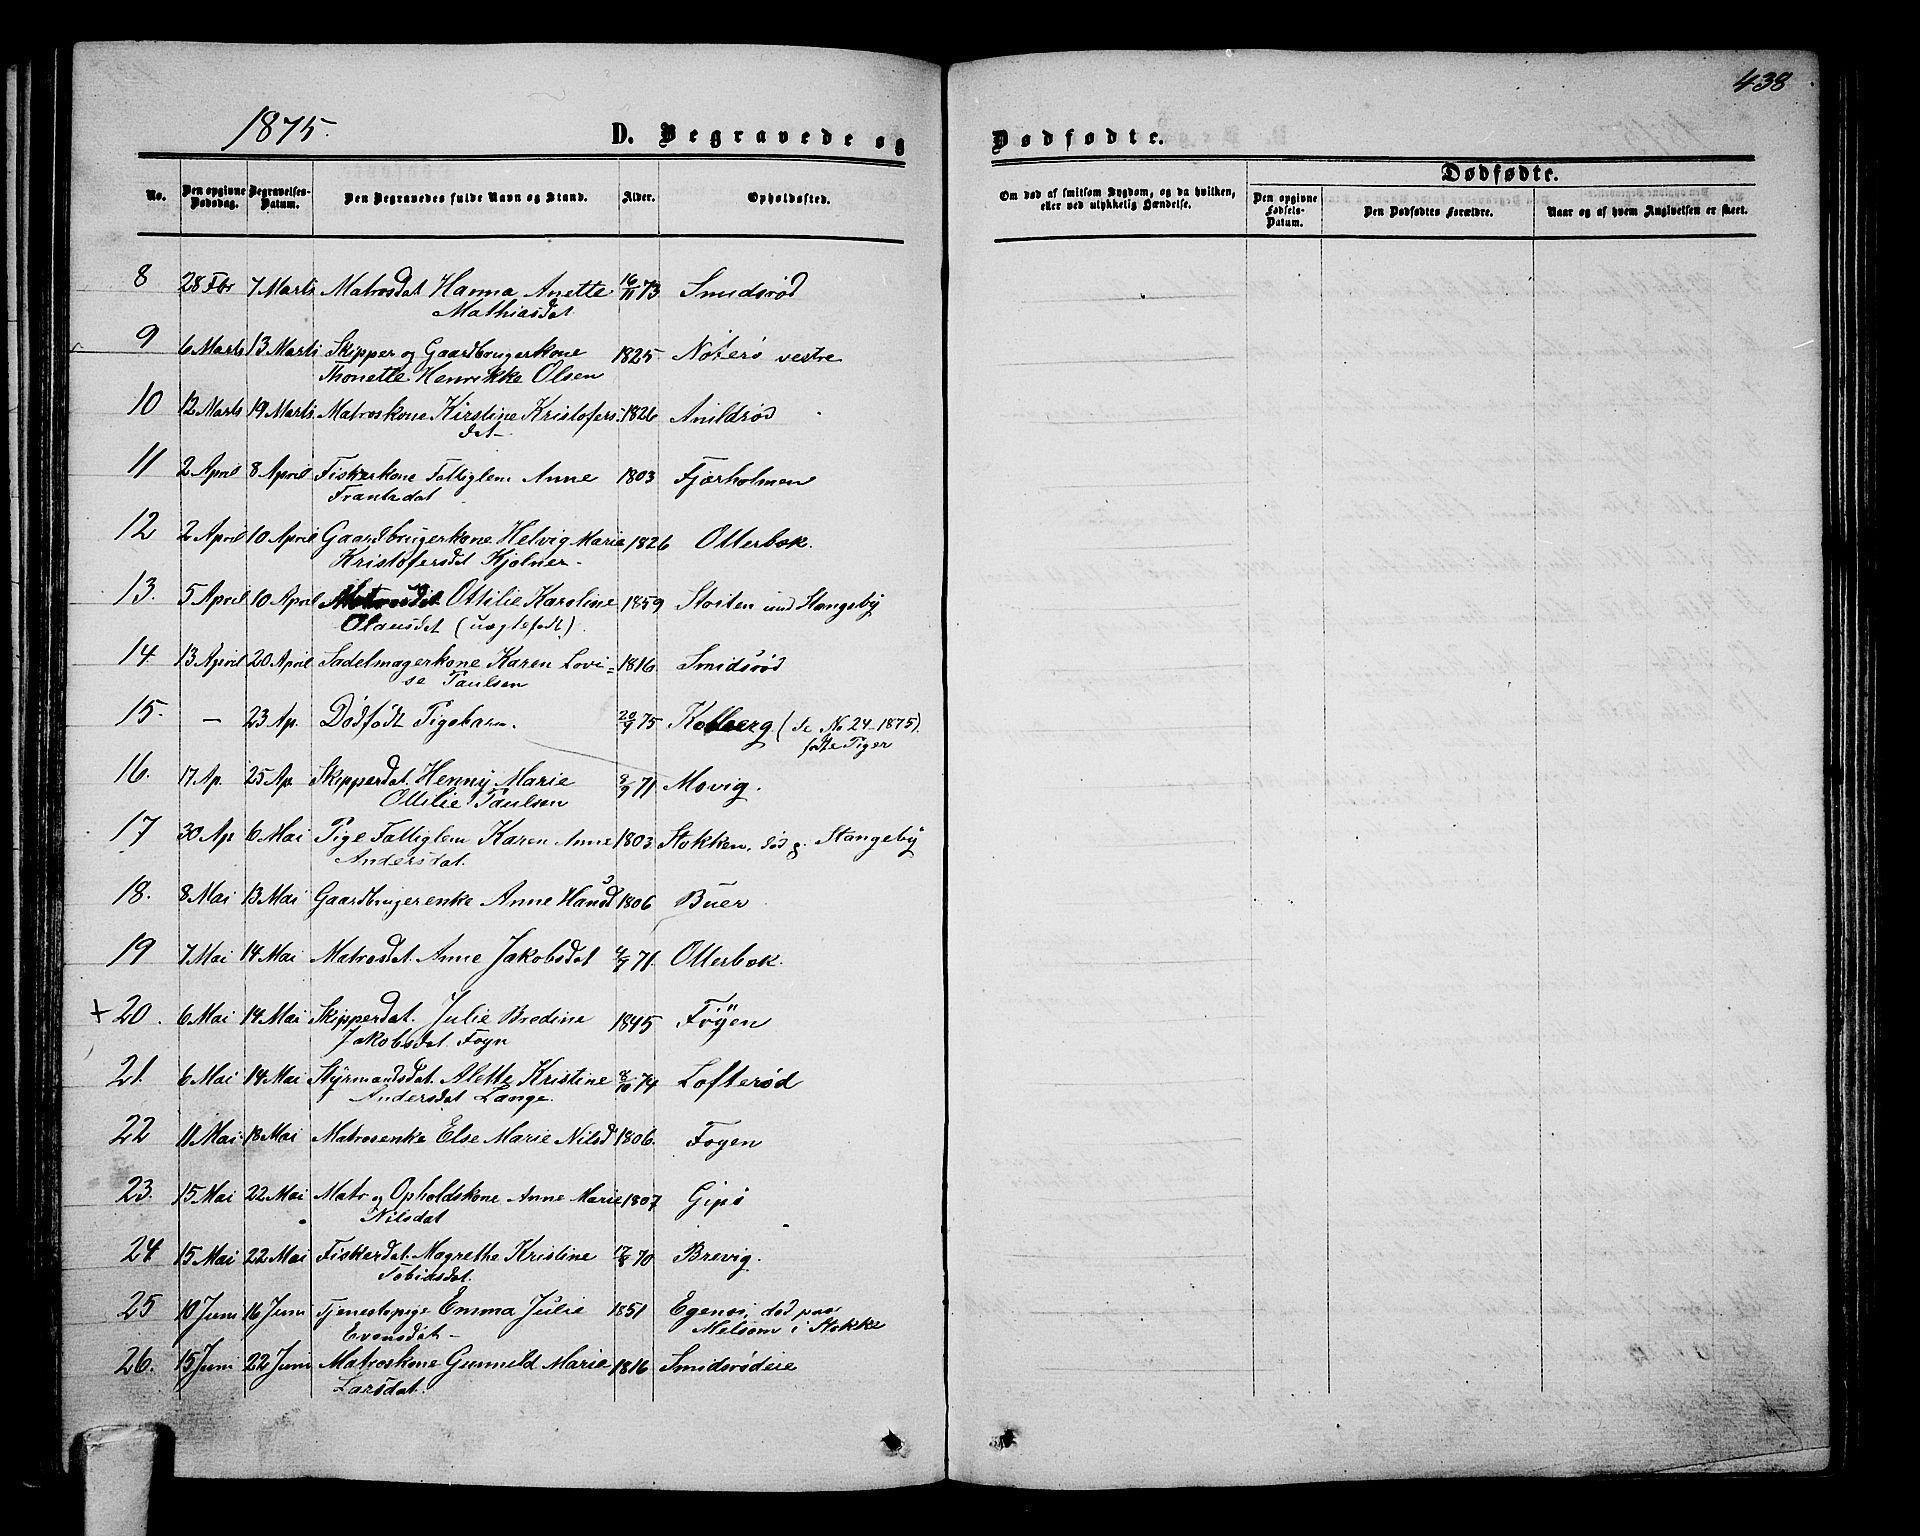 438
1875.
D. Begravede og Dødfødte.
No.
Den opgivne Dødsdag.
Begravelses-Datum.
Den Begravedes fulde Navn og Stand.
Alder.
Opholdssted.
Om død af smitsom Sygdom, og da hvilken, eller ved ulykkelig Hændelse.
Dødfødte.
Den opgivne Fødsels-Datum.
Den Dødfødtes Forældre.
Naar og af hvem Angivelsen er skeet.
8 28 Fbr 7 Marts Matrosdat Hanna Anette 16/11 73 Smidsrød
Mathiasdat
9 6 Marts 13 Marts Skipper og Gaardbrugerkone 1825 Nøterø vestre
Thonette Henrikke Olsen
10 12 Marts 19 Marts Matroskone Kirstine Kristofers 1826 Anildrød
dat
11 2 April 8 April Fiskerkone Fattiglem Anne 1803 Fjærholmen
Frantsdat
12 2 April 10 April Gaardbrugerkone Helvig Marie 1826 Otterbæk.
Kristofersdat Kjølner
13. 5 April 10 April Ottilie Karoline 1859 Storten Stangeby
Olausdat (uægtefødt).
14 13 April 20 April Sadelmagerkone Karen Lovi= 1816 Smidsrød
se Paulsen
15. — 23 Ap. Dødfødt Pigebarn. 20/4 75 Kolberg (se No 24 1875).
fødte Piger
16. 17 Ap. 25 Ap. Skipperdat. Henny Marie 71 Movig.
Ottilie Paulsen
17 30 Ap 6 Mai Pige Fattiglem Karen Anne 1803 Stokken, død p. Stangeby
Andersdat.
18. 8 Mai 13 Mai Gaardbrugerenke Anne Hansd 1806 Buer
19 7 Mai 14 Mai Matrosdat. Anne Jakobsdat 71. Otterbæk.
+ 20. 6 Mai 14 Mai Skipperdat. Julie Bredine 1845 Føÿen
Jakobsdat Foyn
21. 6 Mai 14 Mai Styrmandsdat. Alette Kristine 8/10 74 Lofterød
Andersdat Lange.
22 11 Mai 18 Mai Matrosenke Else Marie Nilsd 1806. Foyen
23. 15 Mai 22 Mai Matr og Opholdskone Anne Marie 1807 Gipø
Nilsdat
24 15 Mai 22 Mai Fiskerdat. Magrethe Kristine 70 Brevig.
Tobiasdat.
25 10 Juni 16 Juni Tjenestepige Emma Julie 1851 Egenæs, død paa
Evensdat Melsom i Stokke
26. 15 Juni 22 Juni Matroskone Gunnild Marie 1816 Smidsrødeie
Larsdat.